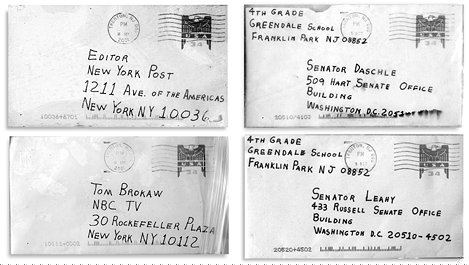 TRENTON, NJ
PM
USA
34
EDITOR
NEW YORK POST
1211 AVE. OF THE AMERICAS
NEW YORK NY 10036
10036+6701
4TH GRADE
GREENDALE SCHOOL
FRANKLIN PARK NJ 08852
PM
USA
34
SENATOR DASCHLE
509 HART SENATE OFFICE
BUILDING
WASHINGTON D.C. 20510-
20510/4103
PM
USA
34
TOM BROKAW
NBC TV
30 ROCKEFELLER PLAZA
NEW YORK NY 10112
10111+0002
4TH GRADE
GREENDALE SCHOOL
FRANKLIN PARK NJ 08852
TRENTON, NJ
PM
USA
34
SENATOR LEAHY
433 RUSSELL SENATE OFFICE
BUILDING
WASHINGTON D.C. 20510-4502
20520+4502